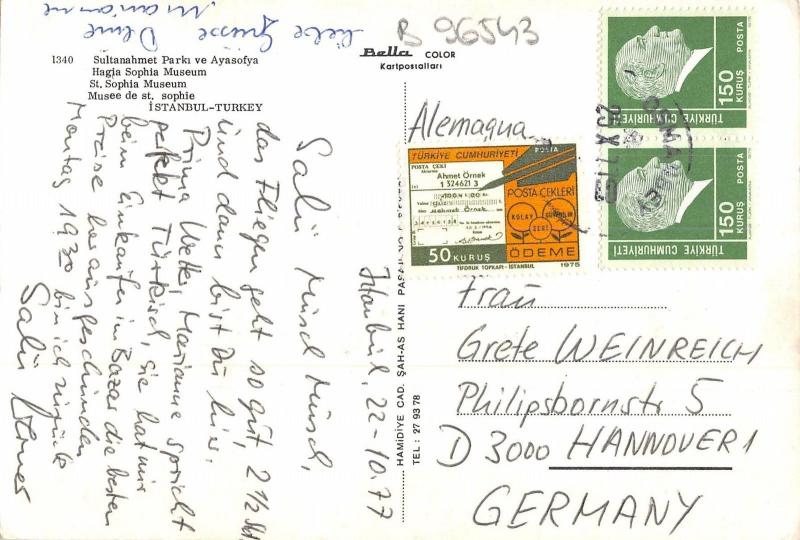 liebe Grüsse Deine
Marianne
B 96543
1340 Sultanahmet Parkı ve Ayasofya
Hagia Sophia Museum
St. Sophia Museum
Musee de st. sophie
İSTANBUL-TURKEY
Bella COLOR
Kartpostalları
HAMİDİYE CAD. ŞAH-AS HANI PASAJ
TEL : 27 93 78
Istanbul, 22-10-77
Salü Müsd Müsd,
das Fliegen geht so gut, 2 1/2 Std.
und dann bist Du hier.
Prima Wetter, Marianne spricht
perfekt Türkisch, sie hat mir
beim Einkaufen im Bazar die besten
Preise herausgeschunden
Montag 19 30 bin ich zurück
Salü
Alemaqua
TÜRKİYE CUMHURİYETİ
POSTA
POSTA ÇEKİ
Ahmet Örnek
1 324621 3
Mehmet Örnek
POSTA ÇEKLERİ
KOLAY
SERİ
GÜVENİLİR
ÖDEME
50 KURUŞ
TİFDRUK TOPKAPI - İSTANBUL
1975
150 KURUŞ
POSTA
TÜRKİYE CUMHURİYETİ
150 KURUŞ
POSTA
TÜRKİYE CUMHURİYETİ
Frau
Grete WEINREICH
Philipsbornstr 5
D 3000 HANNOVER 1
GERMANY